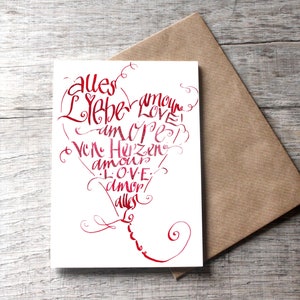 alles
Liebe amour
LOVE!
amore
von Herzen
amour
LOVE
amor
alles